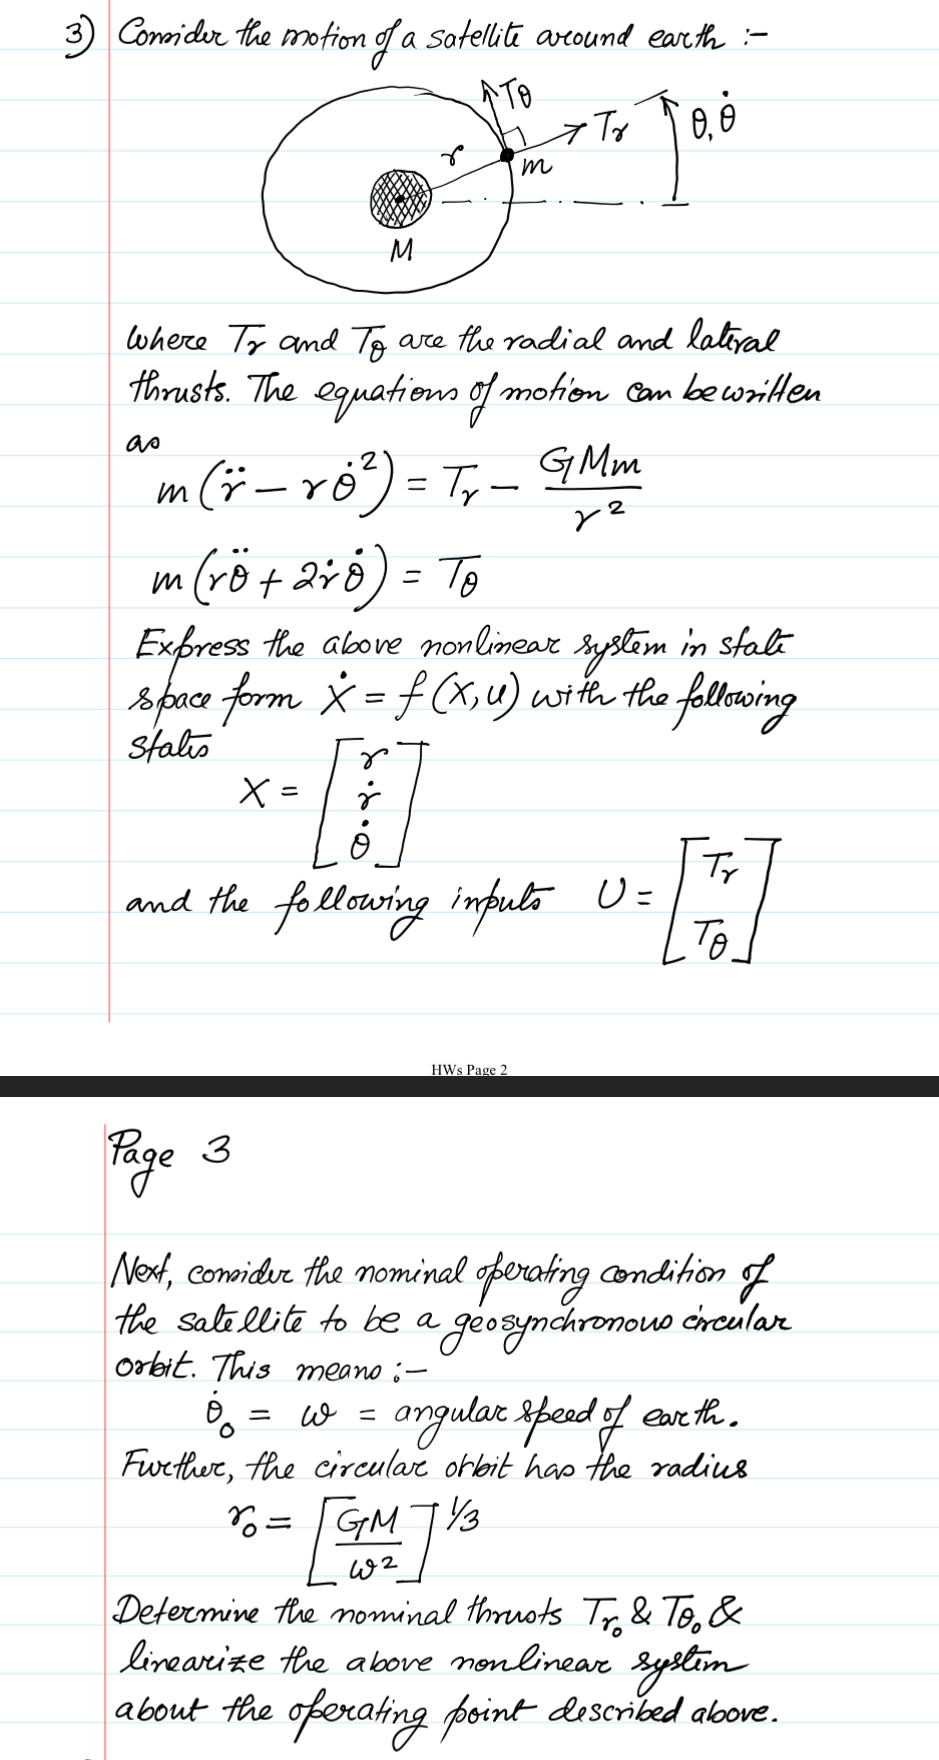 3) Consider the motion of a satellite around earth :-
Tθ
Tr
θ, θ̇
r
m
M
where Tr and Tθ are the radial and lateral
thrusts. The equations of motion can be written
as
m(r̈ − rθ̇²) = Tr − GMm/r²
m(rθ̈ + 2ṙθ̇) = Tθ
Express the above nonlinear system in state
space form Ẋ = f(X,U) with the following
states
X = [r ṙ θ̇]
and the following inputs U = [Tr Tθ]
HWs Page 2
Page 3
Next, consider the nominal operating condition of
the satellite to be a geosynchronous circular
orbit. This means :-
θ̇₀ = ω = angular speed of earth.
Further, the circular orbit has the radius
r₀ = [GM/ω²]^1/3
Determine the nominal thrusts Tr₀ & Tθ₀ &
linearize the above nonlinear system
about the operating point described above.